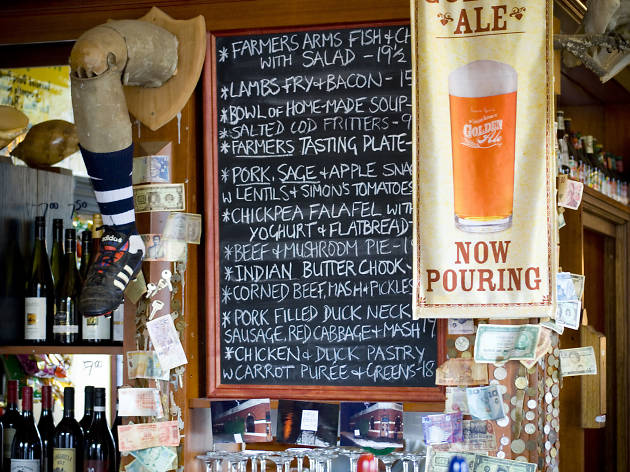 *FARMERS ARMS FISH & CH
WITH SALAD - 19½
*LAMBS FRY & BACON - 15
*BOWL OF HOME-MADE SOUP-
*SALTED COD FRITTERS - 9
*FARMERS TASTING PLATE-
*PORK, SAGE & APPLE SNA
W LENTILS & SIMON'S TOMATOES
*CHICKPEA FALAFEL WITH
YOGHURT & FLATBREAD-
*BEEF & MUSHROOM PIE - 19
*INDIAN BUTTER CHOOK-
*CORNED BEEF, MASH & PICKLES
*PORK FILLED DUCK NECK
SAUSAGE, RED CABBAGE & MASH 19
*CHICKEN & DUCK PASTRY
W CARROT PUREE & GREENS - 18
GOLDEN
ALE
GOLDEN
Ale
NOW
POURING
adidas